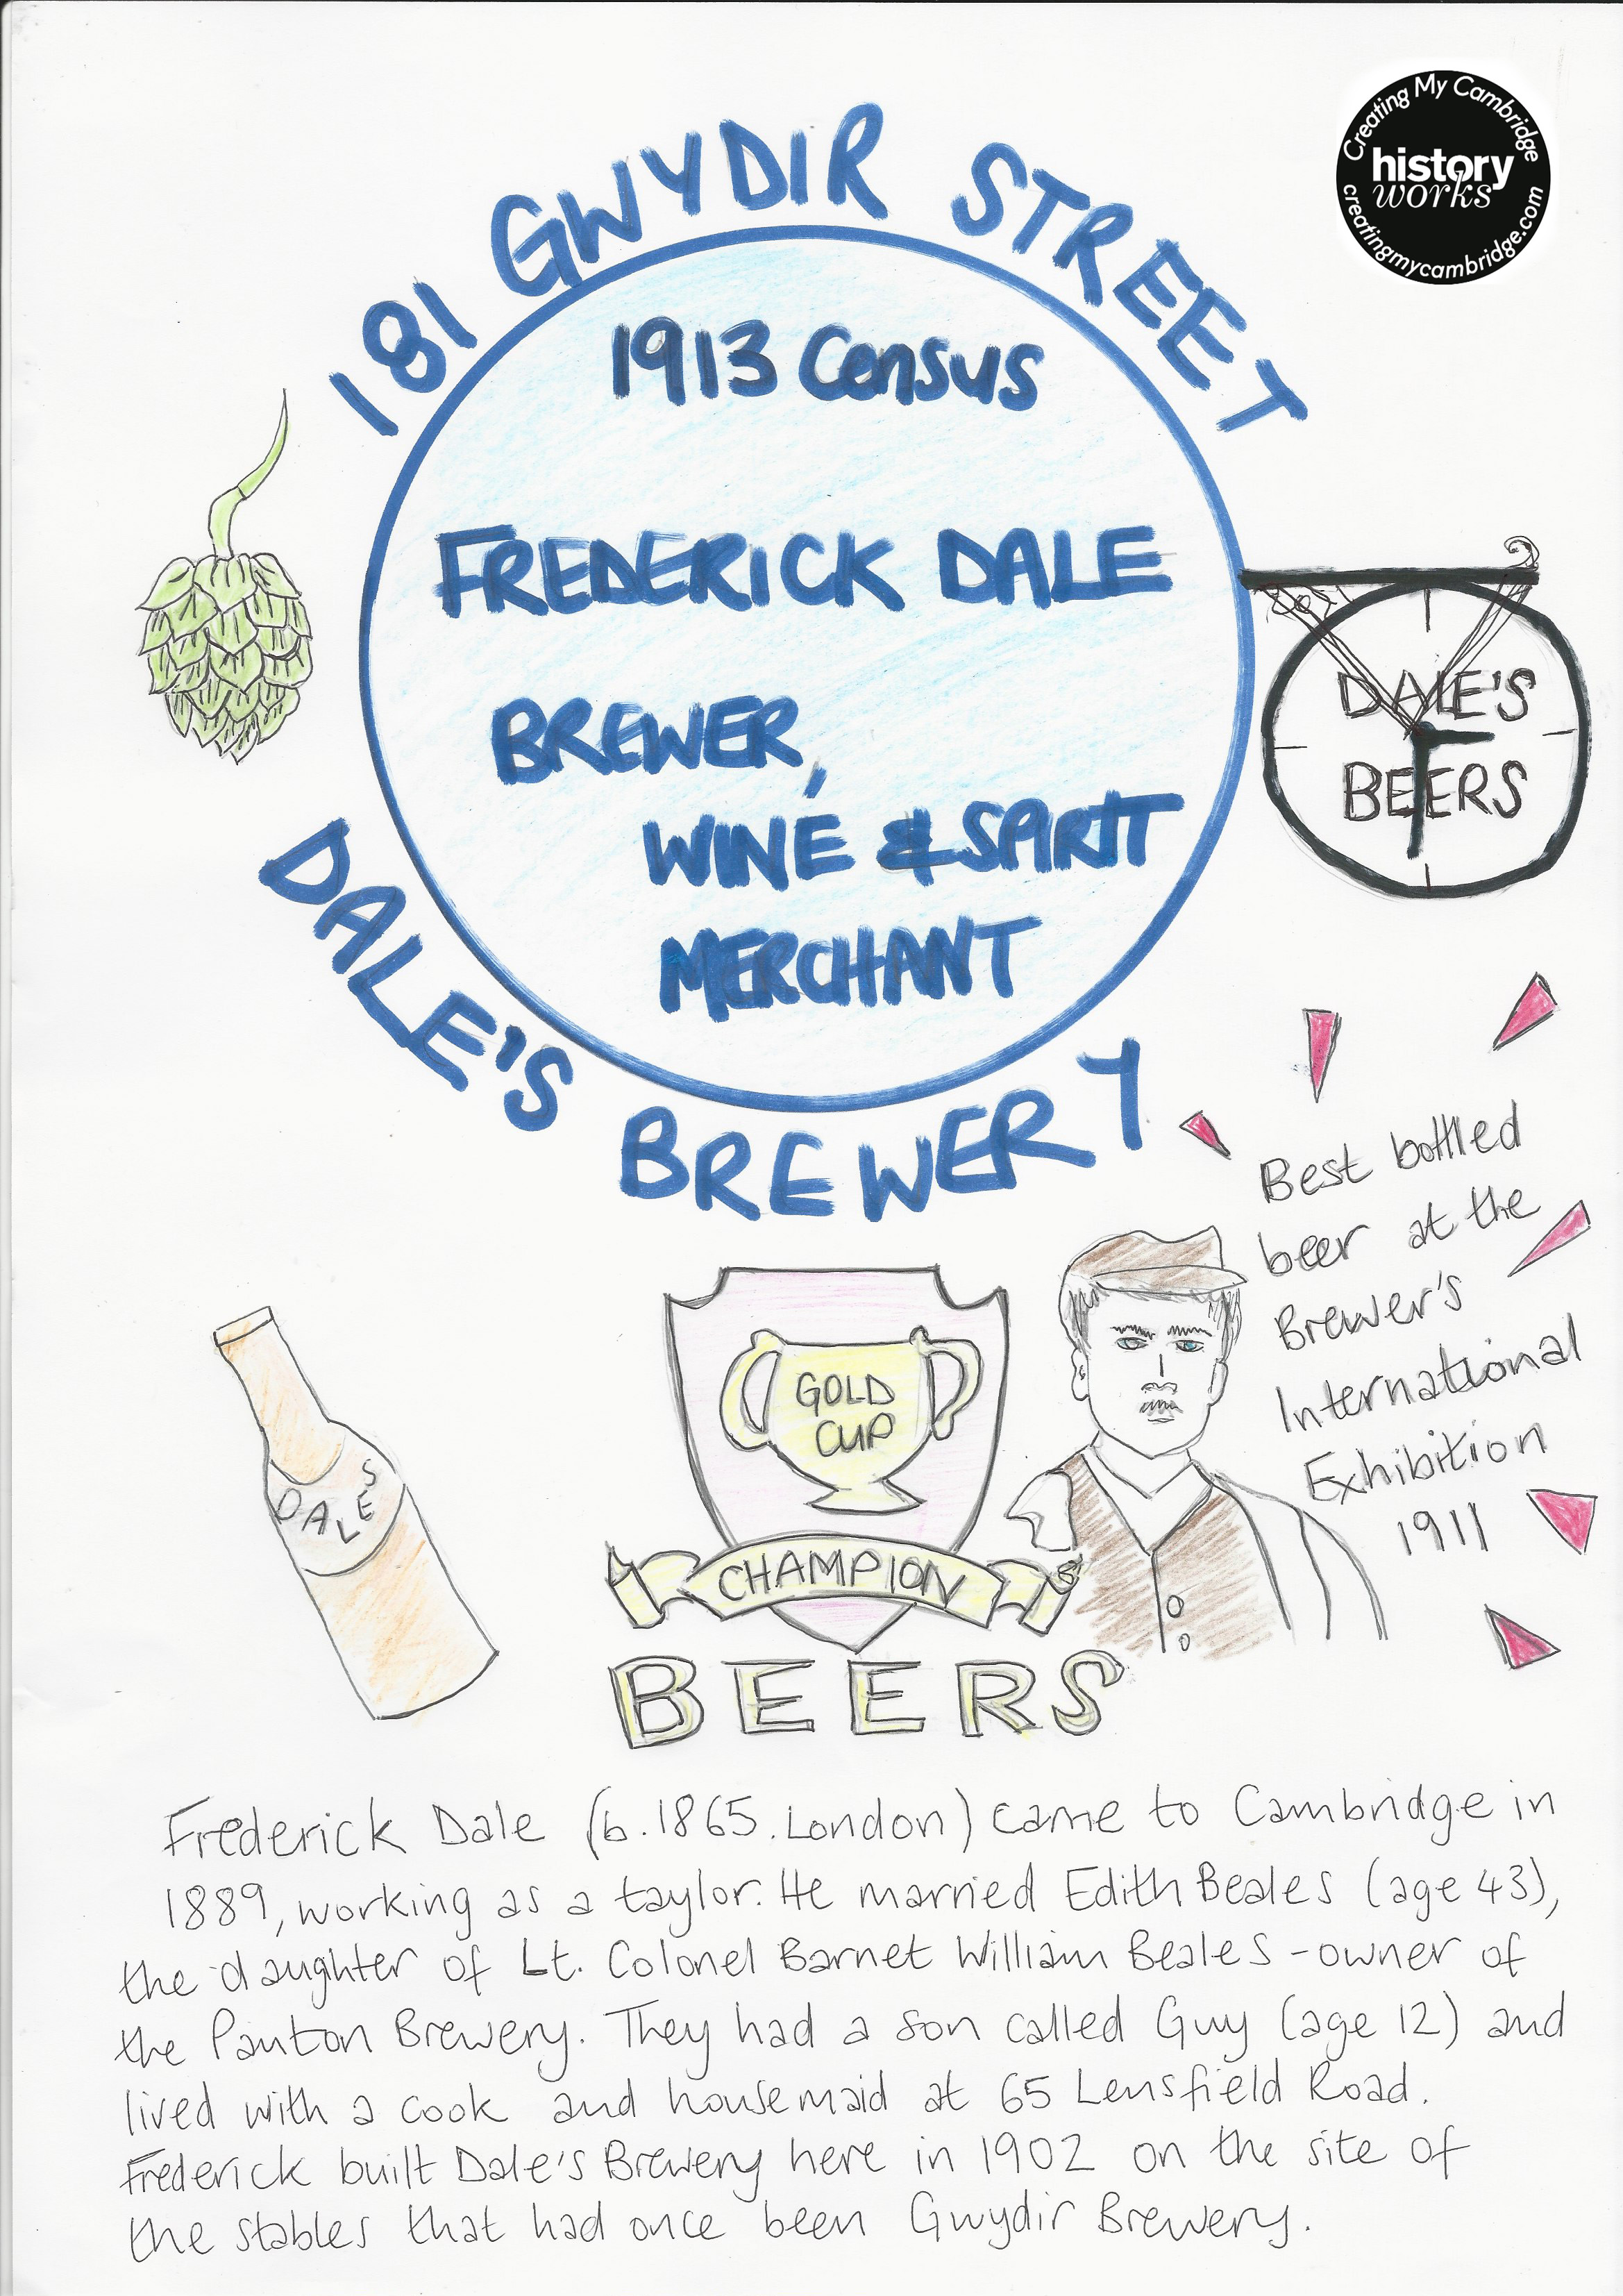 Creating My Cambridge
history
works
creatingmycambridge.com
181 GWYDIR STREET
1913 Census
FREDERICK DALE
BREWER,
WINE & SPIRIT
MERCHANT
DALE'S BREWERY
DALE'S
BEERS
Best bottled
beer at the
Brewer's
International
Exhibition
1911
DALES
GOLD
CUP
CHAMPION
BEERS
Frederick Dale (b.1865.London) came to Cambridge in
1889, working as a taylor. He married Edith Beales (age 43),
the daughter of Lt. Colonel Barnet William Beales - owner of
the Panton Brewery. They had a son called Guy (age 12) and
lived with a cook and housemaid at 65 Lensfield Road.
Frederick built Dale's Brewery here in 1902 on the site of
the stables that had once been Gwydir Brewery.